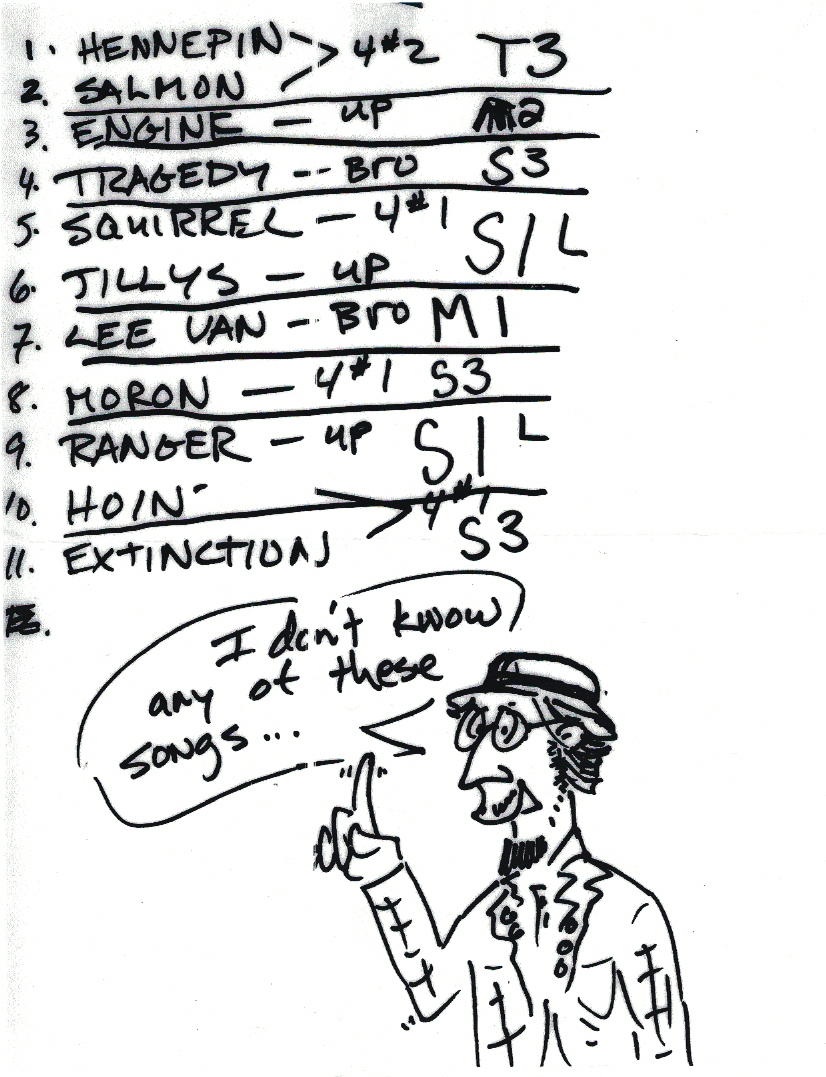 1. HENNEPIN > 4#2 T3
2. SALMON
3. ENGINE - up M2
4. TRAGEDY -- Bro S3
5. SQUIRREL - 4#1 S1L
6. TILLYS - up
7. LEE VAN -- Bro M1
8. MORON - 4#1 S3
9. RANGER - up S1L
10. HOIN' > 4#1
11. EXTINCTION S3
I don't kwow
any of these
songs...